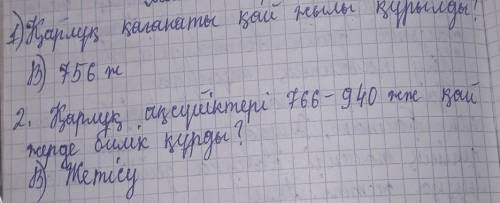 1) Қарлұқ қағанаты қай жылы құрылды?
В) 756 ж
2. Қарлұқ ақсүйіктері 766-940 жж қай
жерде билік құрды?
В) Жетісу